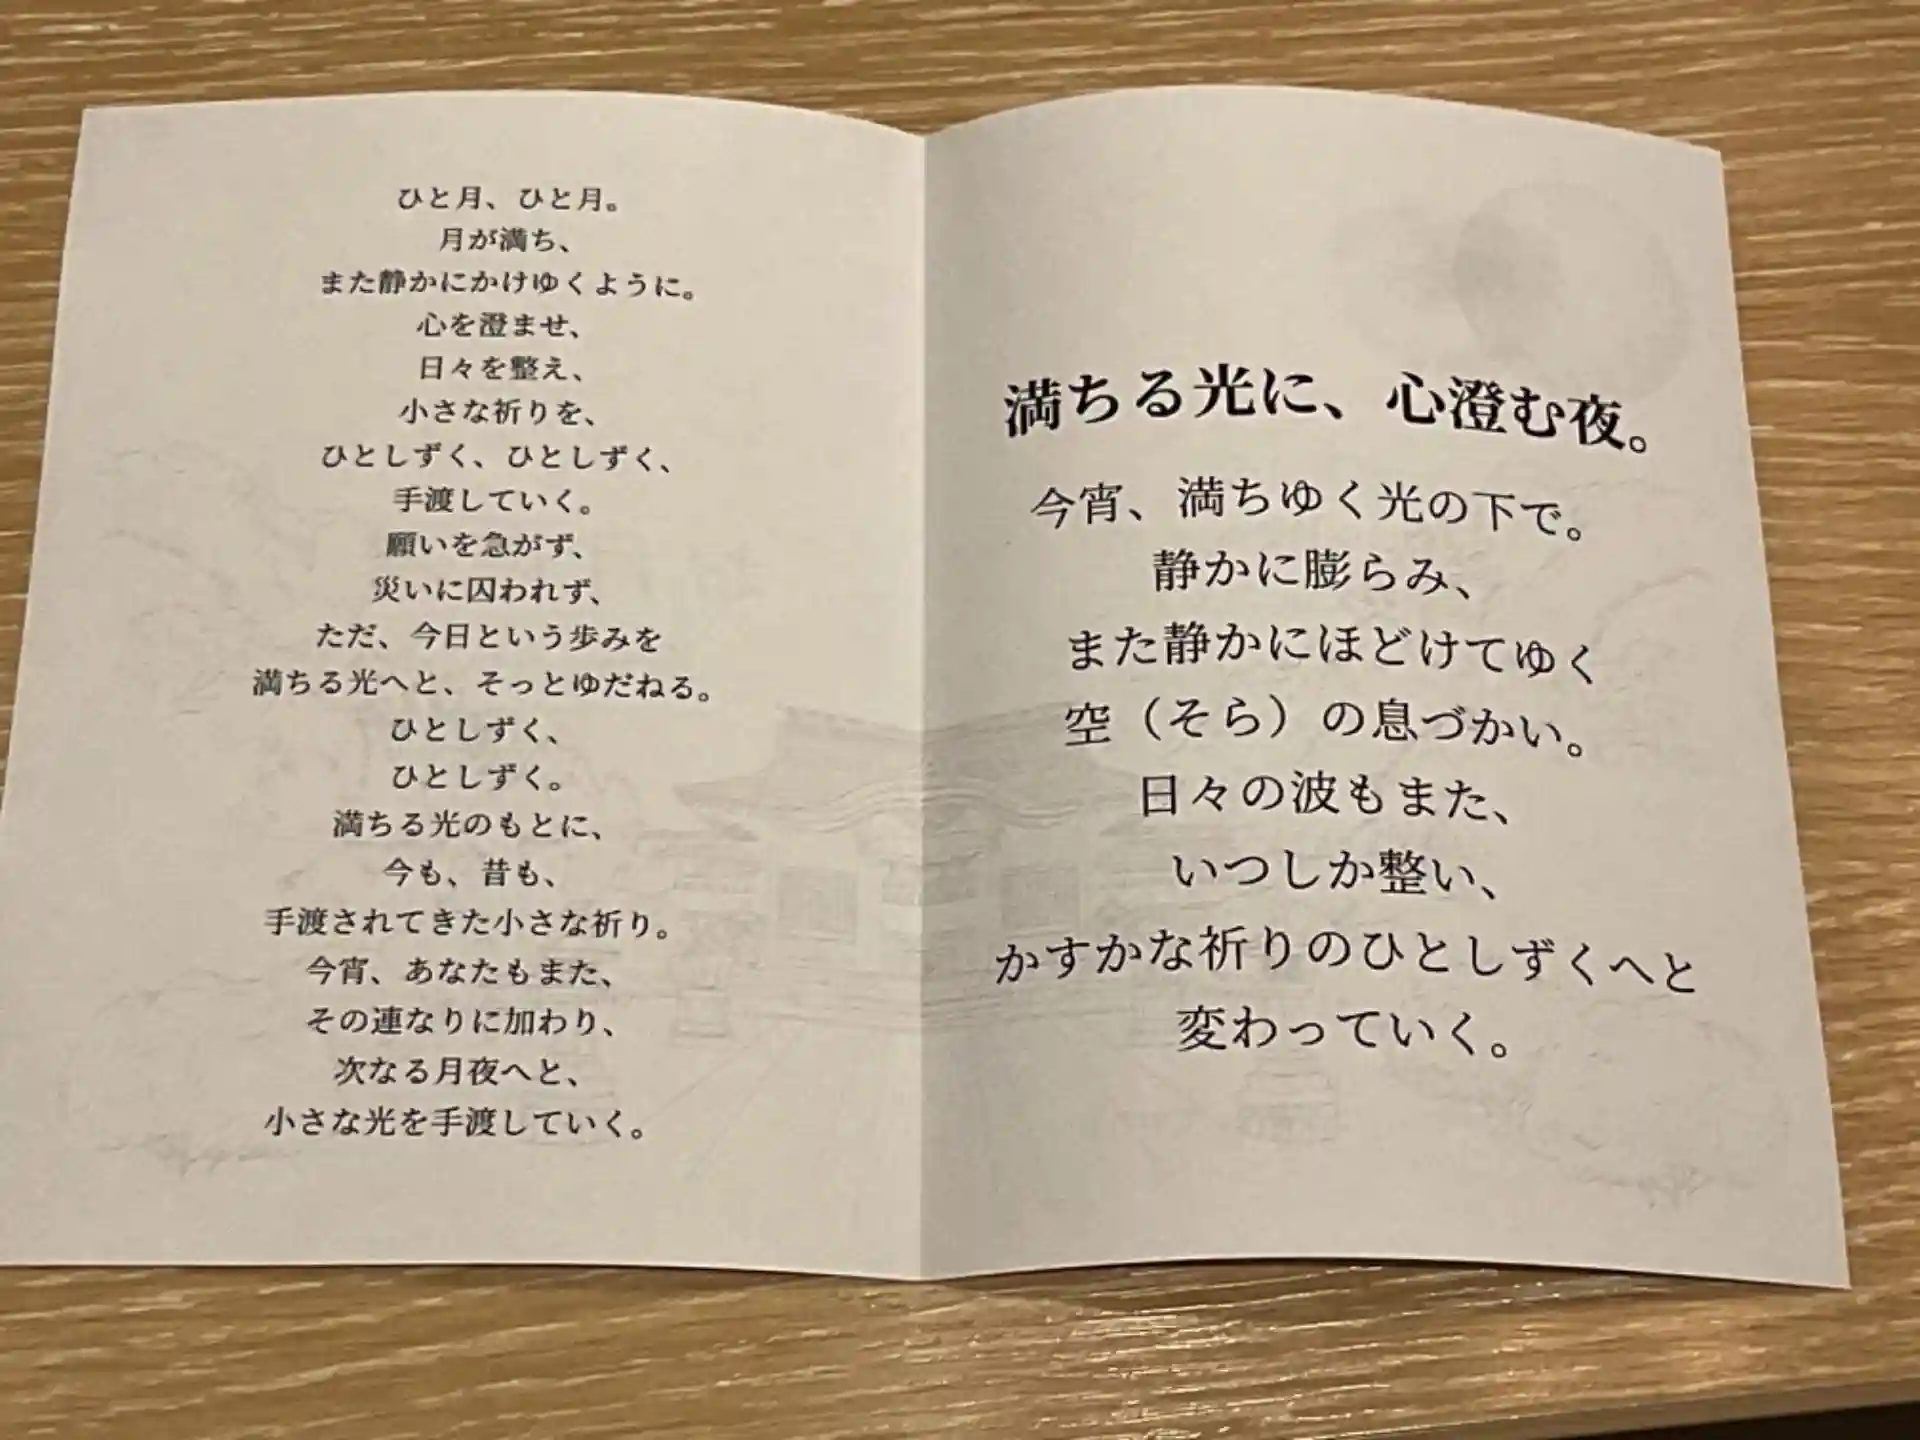 ひと月、ひと月。
月が満ち、
また静かにかけゆくように。
心を澄ませ、
日々を整え、
小さな祈りを、
ひとしずく、ひとしずく、
手渡していく。
願いを急がず、
災いに囚われず、
ただ、今日という歩みを
満ちる光へと、そっとゆだねる。
ひとしずく、
ひとしずく。
満ちる光のもとに、
今も、昔も、
手渡されてきた小さな祈り。
今宵、あなたもまた、
その連なりに加わり、
次なる月夜へと、
小さな光を手渡していく。
満ちる光に、心澄む夜。
今宵、満ちゆく光の下で。
静かに膨らみ、
また静かにほどけてゆく
空（そら）の息づかい。
日々の波もまた、
いつしか整い、
かすかな祈りのひとしずくへと
変わっていく。